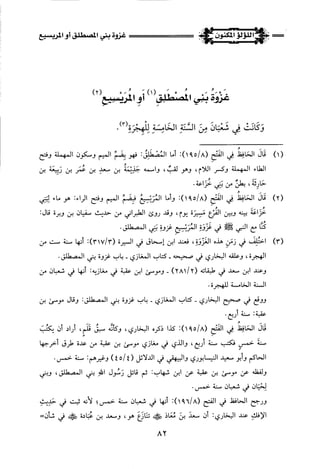 اللؤلؤ المكنون
غزوة بني المصطلق أو المريسيع
غَزْوَةُ بَنِي المُصْطَلِقِ (١) أَوِ المُرَيْسِيعِ (٢)
وَكَانَتْ فِي شَعْبَانَ مِنَ السَّنَةِ الخَامِسَةِ لِلْهِجْرَةِ (٣).
(١) قَالَ الحَافِظُ فِي الفَتْحِ (٨/١٩٥): أما المُصْطَلِقُ: فهو بِضَمِّ الميم وسكون المهملة وفتح
الطاء المهملة وكسر اللام، وهو لقبٌ، واسمه جَذِيمَةُ بن سعدِ بن عُمَرَ بن رَبِيعَةَ بن
حَارِثَةَ، بطن من بَنِي خُزاعة.
(٢) قَالَ الحَافِظُ فِي الفَتْحِ (٨/١٩٥): وأما المُرَيْسِيعُ فبِضَمِّ الميم وفتح الراء: هو ماء لِبَنِي
خُزَاعَةَ بينه وبين الفُرْعِ مَسِيرَةُ يوم، وقد روَى الطبراني من حديث سفيان بن وبرة قال:
كُنَّا مع النبي ﷺ في غَزْوَةِ المُرَيْسِيعِ غزوة بَنِي المصطلق.
(٣) اختُلِفَ في زَمَنِ هذه الغَزْوَةِ، فعند ابن إسحاق في السيرة (٣/٣١٧): أنها سنة ست من
الهجرة، وعلقه البخاري في صحيحه - كتاب المغازي - باب غزوة بني المصطلق.
وعند ابن سعد في طبقاته (٢/٢٨١) - وموسى ابن عقبة في مغازيه: أنها في شعبان من
السنة الخامسة للهجرة.
ووقع في صحيح البخاري - كتاب المغازي - باب غزوة بني المصطلق: وقال موسى بن
عقبة: سنة أربع.
قَالَ الحَافِظُ فِي الفَتْحِ (٨/١٩٥): كذا ذكره البخاري، وكأنَّه سبقُ قَلَمٍ، أراد أن يكتُبَ
سنة خمسٍ فكتب سنة أربع، والذي في مغازي موسى بن عقبة من عدة طرق أخرجها
الحاكم وأبو سعيد النيسابوري والبيهقي في الدلائل (٤/٤٥) وغيرهم: سنة خمس.
ولفظه عن موسى بن عقبة عن ابن شهاب: ثم قاتل رَسُول الله ﷺ بني المصطلق، وبني
لِحْيَانَ في شعبان سنة خمس.
ورجح الحافظ في الفتح (٨/١٩٦): أنها في شعبان سنة خمس، لأنه ثبت في حَدِيثِ
الإفكِ عند البخاري: أن سعدَ بن مُعَاذٍ ﷺ تَنَازَعَ هو، وسعد بن عُبَادَةَ ﷺ في شأن=
٨٢